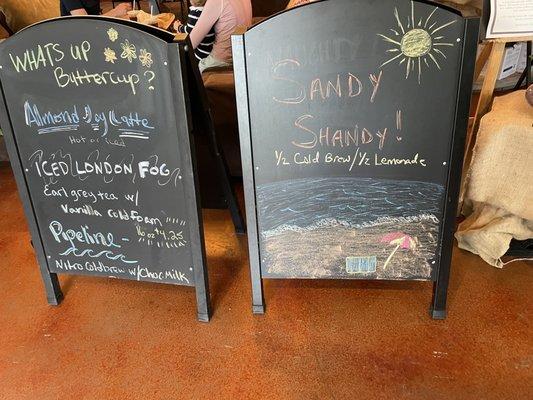 WHATS UP
BUTTERCUP?
Almond Joy Latte
Hot or Iced
ICED LONDON FOG
Earl grey tea w/
Vanilla cold foam
16 oz $4.25
Pipeline
Nitro coldbrew w/Choc. Milk
SANDY
SHANDY!
1/2 Cold Brew/1/2 Lemonade